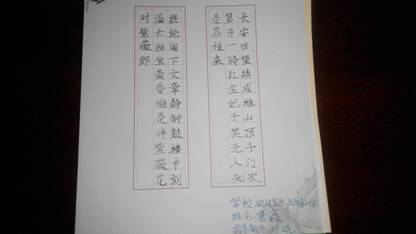 长安回望绣成堆山顶千门次
第开一骑红尘妃子笑无人知
是荔枝来
丝纶阁下文章静钟鼓楼中刻
漏长独坐黄昏谁是伴紫薇花
对紫薇郎
学校
姓名
指导教师